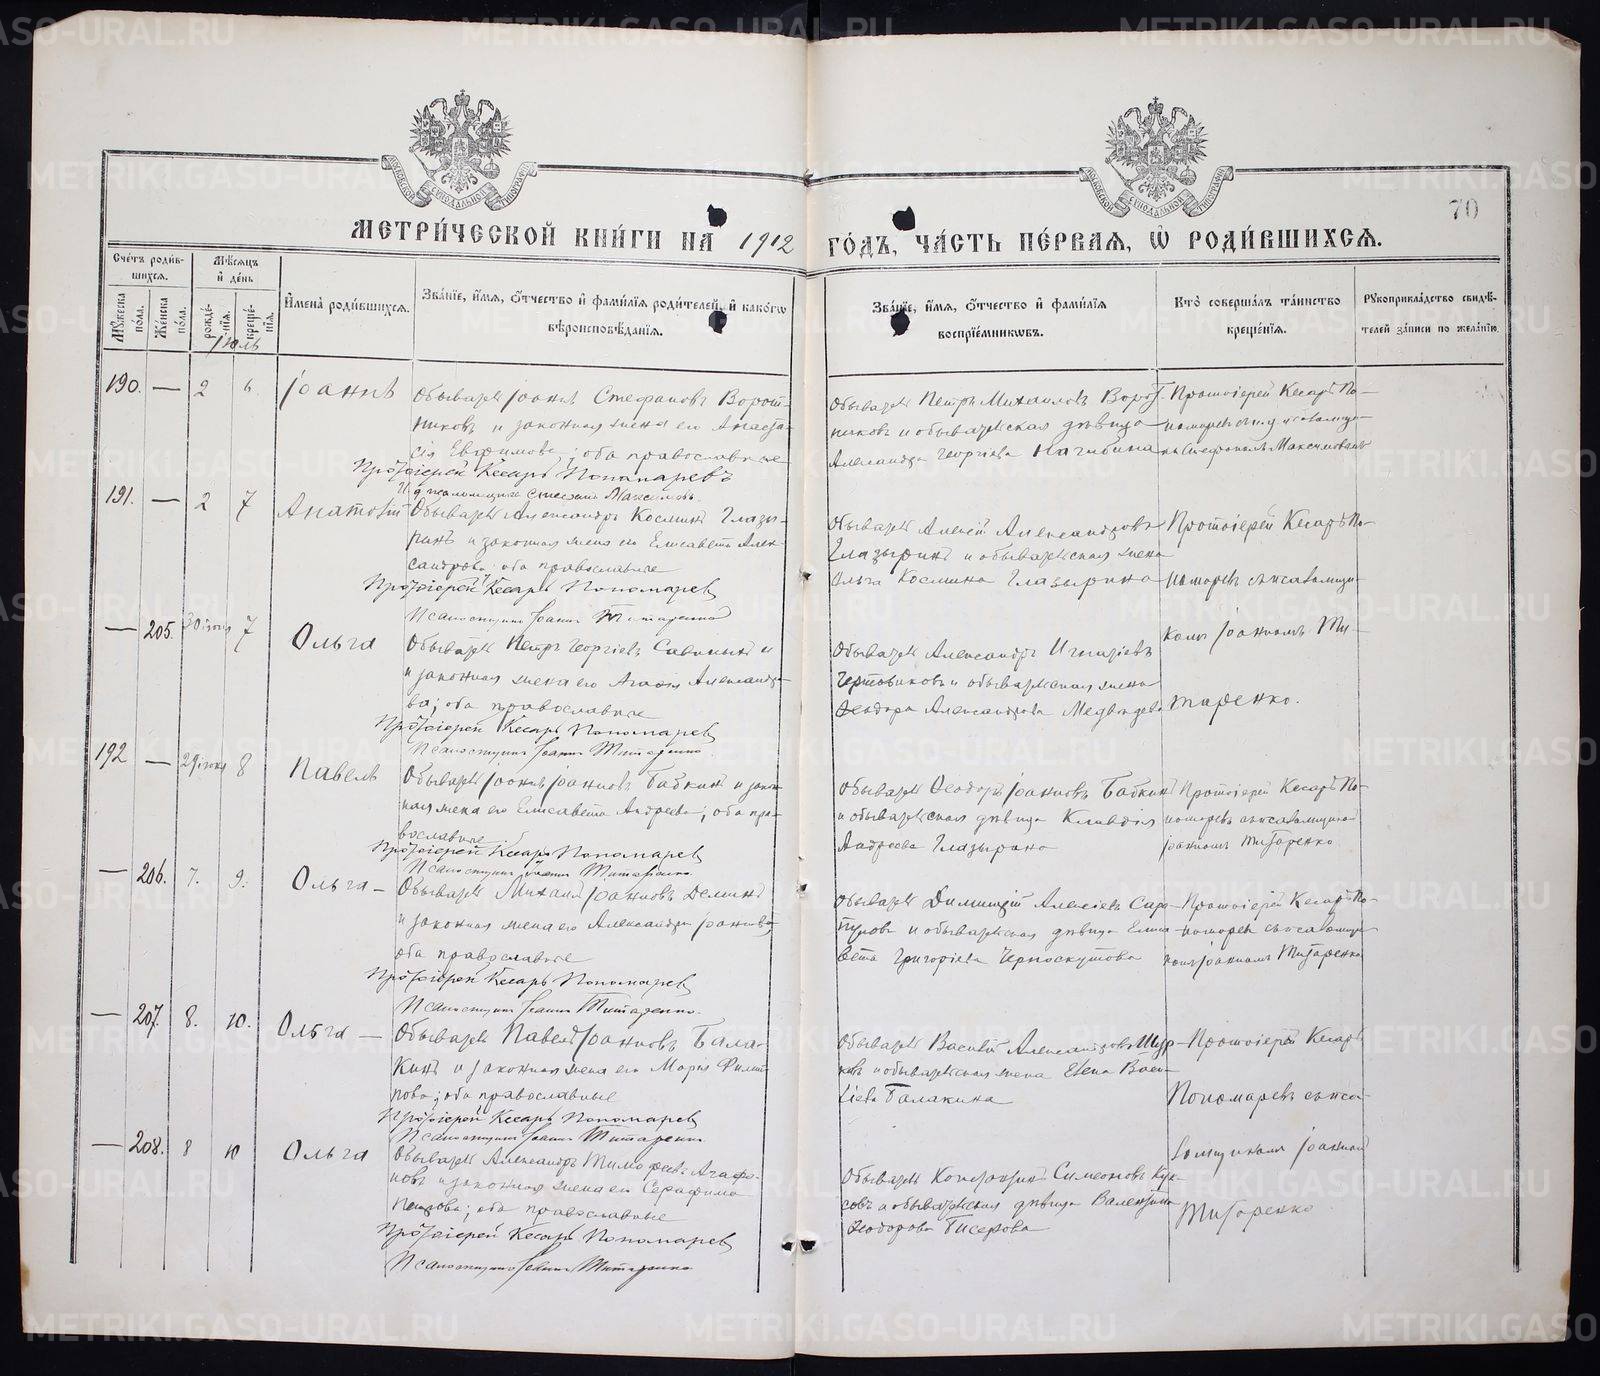 70
МЕТРИЧЕСКОЙ КНИГИ НА 1912 ГОДЪ, ЧАСТЬ ПЕРВАЯ, Ѡ РОДИВШИХСЯ.
Счетъ родив-
шихся.
Мужеска пола.
Женска пола.
Мѣсяцъ и день
рожденія.
крещенія.
Имена родившихся.
Званіе, имя, отчество и фамилія родителей, и какого
вѣроисповѣданія.
Званіе, имя, отчество и фамилія
воспріемниковъ.
Кто совершалъ таинство
крещенія.
Рукоприкладство свидѣ-
телей записи по желанію.
Іюль
190. — 2 6 Іоаннъ
Обыватель Іоаннъ Стефановъ Ворот-
никовъ и законная жена его Анаста-
сія Евфимова; оба православные
Протоіерей Кесарь Пономаревъ
Стефанъ Максимовъ
Обыватель Петръ Михаиловъ Ворот-
никовъ и обывательская дѣвица
Александра Георгіева Нагибина
Протоіерей Кесарь По-
номаревъ
Стефаномъ Максимовымъ
191. — 2 7 Анатолій
Обыватель Александръ Косминъ Глазы-
ринъ и законная жена его Елисавета Алек-
сандрова; оба православные
Протоіерей Кесарь Пономаревъ
Псаломщикъ Іоаннъ Титаренко
Обыватель Алексій Александровъ
Глазыринъ и обывательская жена
Ольга Космина Глазырина
Протоіерей Кесарь По-
номаревъ съ псаломщи-
— 205. 30 іюня 7 Ольга
Обыватель Петръ Георгіевъ
и законная жена его Агафія Александро-
ва; оба православные
Протоіерей Кесарь Пономаревъ
Псаломщикъ Іоаннъ Титаренко
Обыватель Александръ Игнатіевъ
и обывательская жена
Ѳеодора Александрова Медвѣдева
комъ Іоанномъ Ти-
таренко.
192 — 29 іюня 8 Павелъ
Обыватель Іоаннъ Іоанновъ Бабкинъ и закон-
ная жена его Елисавета Андреева; оба пра-
вославные
Протоіерей Кесарь Пономаревъ
Псаломщикъ Іоаннъ Титаренко
Обыватель Ѳеодоръ Іоанновъ Бабкинъ
и обывательская дѣвица Клавдія
Андреева Глазырина
Протоіерей Кесарь По-
номаревъ съ псаломщикомъ
Іоанномъ Титаренко
— 206. 7. 9. Ольга —
Обыватель Михаилъ Іоанновъ Деминъ
и законная жена его Александра Іоаннова,
оба православные
Протоіерей Кесарь Пономаревъ
Псаломщикъ Іоаннъ Титаренко.
Обыватель Димитрій Алексіевъ Сара-
пуловъ и обывательская дѣвица Елиса-
вета Григоріева Черноскутова
Протоіерей Кесарь По-
номаревъ съ псаломщи-
комъ Іоанномъ Титаренко
— 207. 8. 10. Ольга —
Обыватель Павелъ Іоанновъ Бала-
кинъ и законная жена его Марія Филип-
пова; оба православные
Протоіерей Кесарь Пономаревъ
Псаломщикъ Іоаннъ Титаренко
Обыватель Василій Александровъ
и обывательская жена Елена Васи-
ліева Балакина
Протоіерей Кесарь
Пономаревъ съ пса-
— 208. 8 10 Ольга
Обыватель Александръ Тимофеевъ Агафо-
новъ и законная жена его Серафима
Петрова; оба православные
Протоіерей Кесарь Пономаревъ
Псаломщикъ Іоаннъ Титаренко
Обыватель Константинъ Симеоновъ
и обывательская дѣвица Валентина
Ѳеодорова Бисерова
ломщикомъ Іоанномъ
Титаренко
METRIKI.GASO-URAL.RU